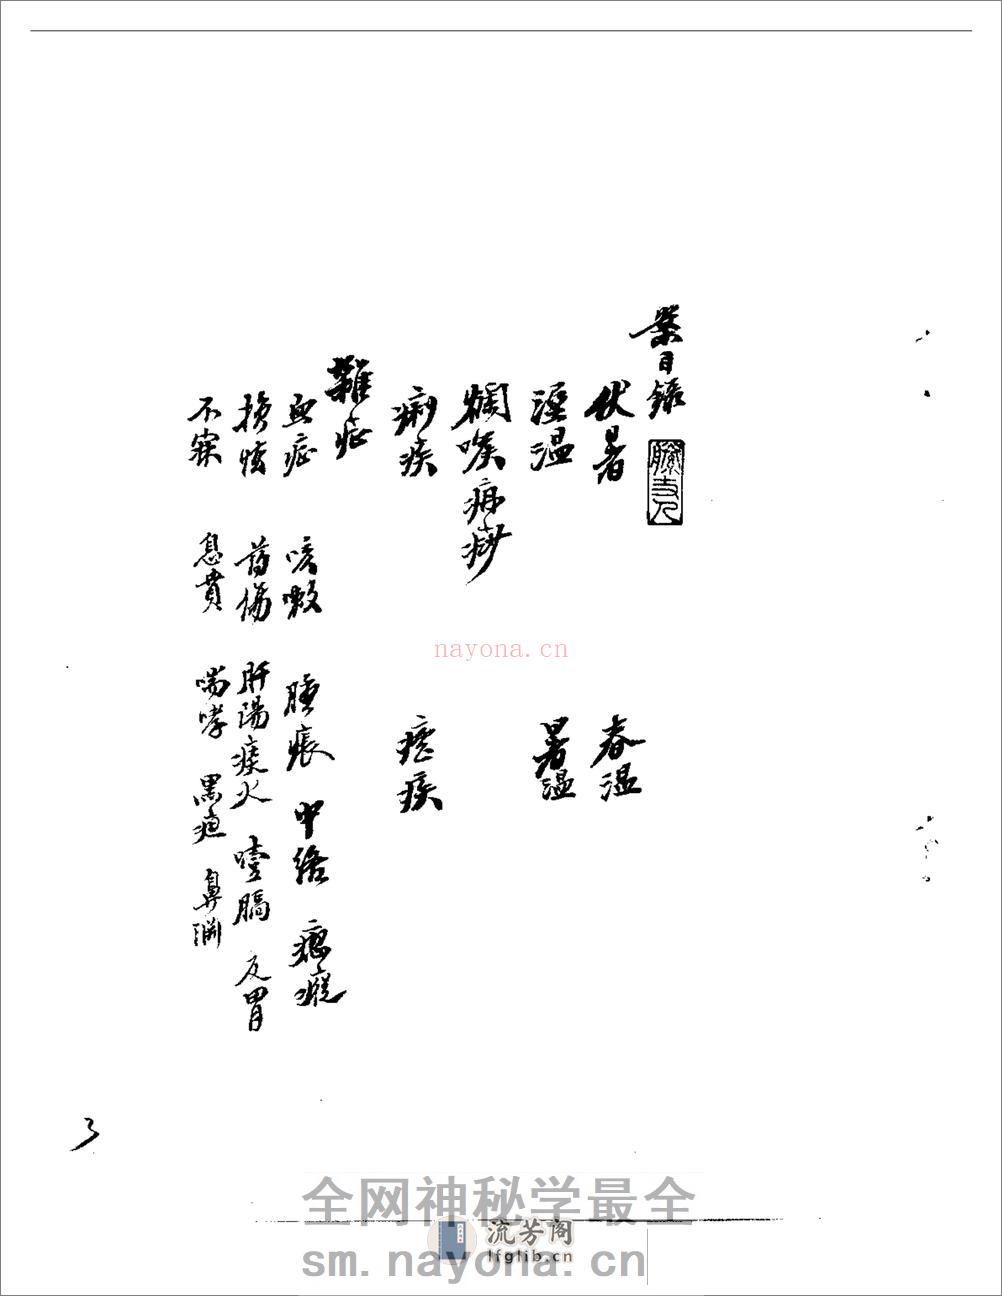 案目錄
伏暑 春温
溼温 暑温
爛喉痧
痢疾 瘧疾
雜症
血症 咳嗽 腫脹 中絡 瘛瘲
損怯 肝陽痰火 噎膈 反胃
不寐 息賁 喘哮 黑疸 鼻淵
3
nayona.cn
全网神秘学最全
流芳阁
lfglib.cn
sm.nayona.cn